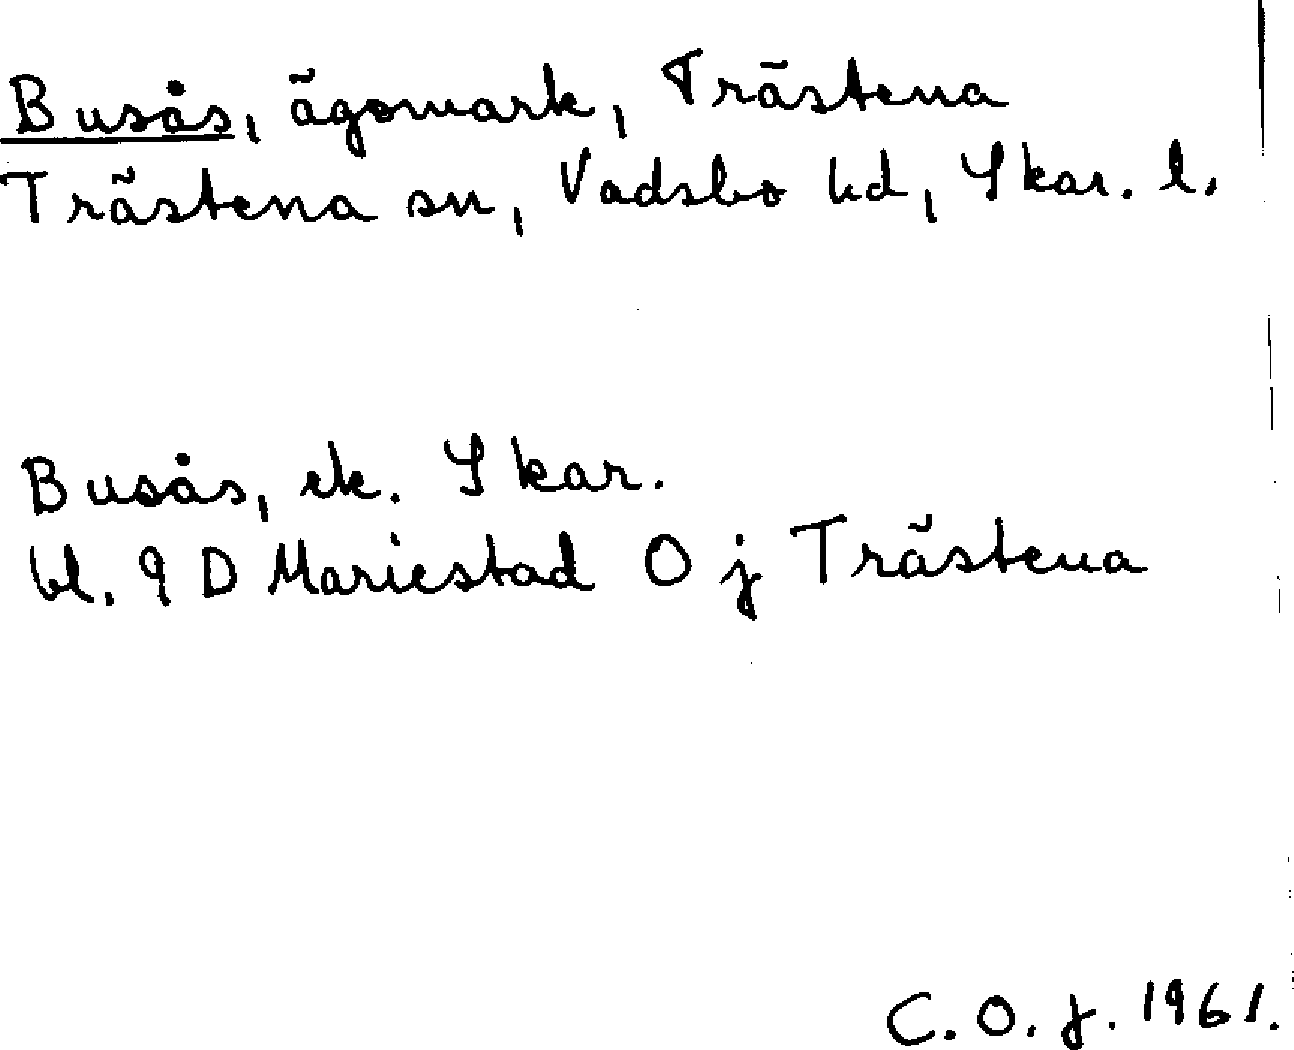 Busås, ägomark, Trästena
Trästena sn, Vadsbo hd, Skar. l.
Busås, ek. Skar.
bl. 9 D Mariestad O j Trästena
C. O. J. 1961.